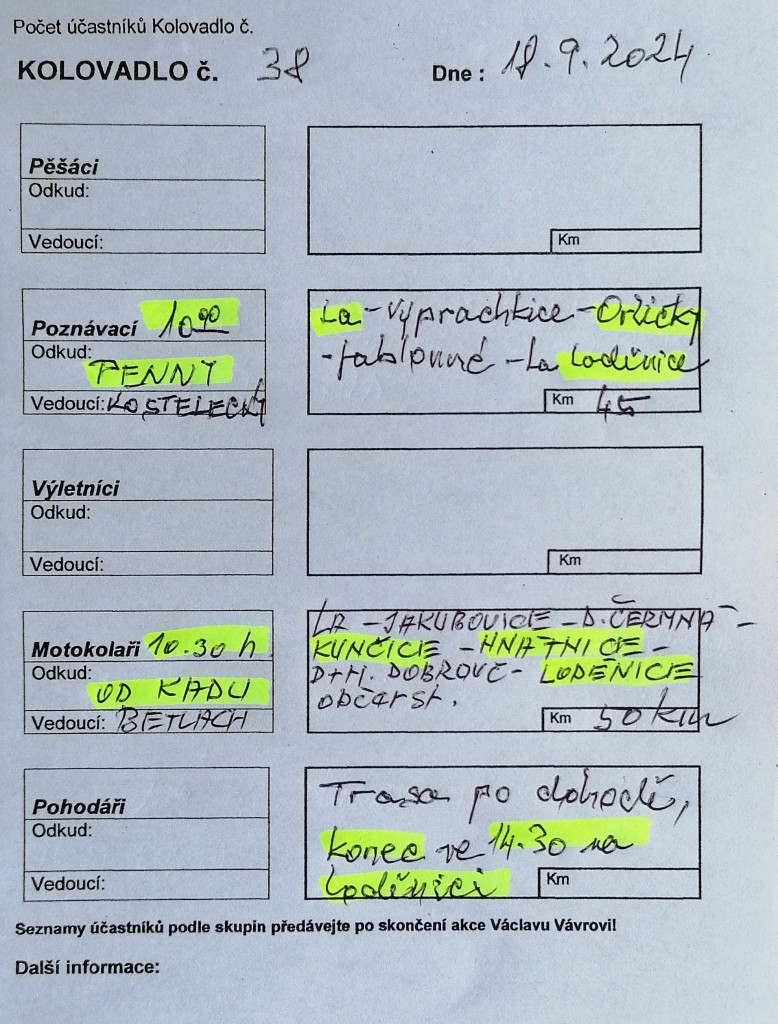 Počet účastníků Kolovadlo č.
KOLOVADLO č. 38 Dne : 18.9.2024
Pěšáci
Odkud:
Vedoucí:
Km
Poznávací 10 00
Odkud:
PENNY
Vedoucí: KOSTELECKÝ
La - Výprachtice - Orličky
- Jablonné - La Loděnice
Km 45
Výletníci
Odkud:
Vedoucí:
Km
Motokolaři 10.30 h
Odkud:
OD KADU
Vedoucí: BETLACH
LA - JAKUBOVICE - D. ČERMNÁ -
KUNČICE - HNÁTNICE -
D+H. DOBROUČ - LODĚNICE
občarst.
Km 50 km
Pohodáři
Odkud:
Vedoucí:
Trasa po dohodě,
konec ve 14.30 na
Loděnici
Km
Seznamy účastníků podle skupin předávejte po skončení akce Václavu Vávrovi!
Další informace: